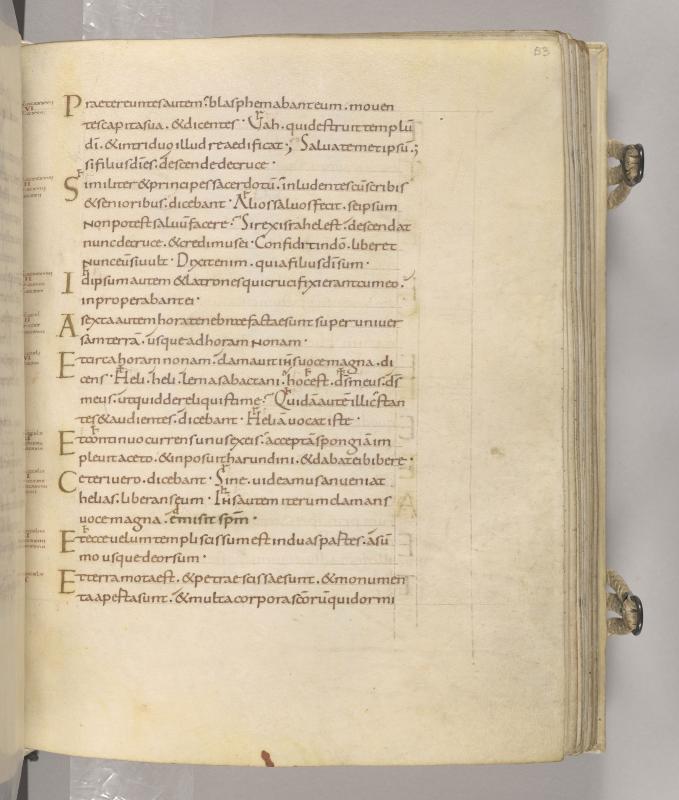 53
Praetereuntes autem. blasphemabant eum. moven
tes capita sua. & dicentes · Vah. qui destruit templū
dī. & in triduo illud reaedificat; Salva temetipsū;
si filius dī es. descende de cruce ·
Similiter & principes sacerdotū. inludentes cū scribis
& senioribus. dicebant · Alios salvos fecit. seipsum
non potest salvū facere · Si rex israhel est. descendat
nunc de cruce. & credimus ei · Confidit in dō. liberet
nunc eū si vult · Dixit enim. quia filius dī sum ·
Idipsum autem & latrones qui crucifixi erant cum eo.
inproperabant ei ·
A sexta autem hora tenebrae factae sunt super univer
sam terrā. usque ad horam nonam ·
Et circa horam nonam. clamavit ihs voce magna. di
cens · Heli. heli. lema sabactani. hoc est. ds meus. ds
meus. ut quid dereliquisti me · Quidā autē illic stan
tes & audientes. dicebant · Heliā vocat iste ·
Et continuo currens unus ex eis. acceptā spongiā im
plevit aceto. & inposuit harundini. & dabat ei bibere ·
Ceteri vero. dicebant · Sine. videamus an veniat
helias. liberans eum · Ihs autem iterum clamans
voce magna. emisit spm ·
Et ecce velum templi scissum est in duas partes. a sū
mo usque deorsum ·
Et terra mota est. & petrae scissae sunt. & monumen
ta aperta sunt. & multa corpora scōrū qui dormi